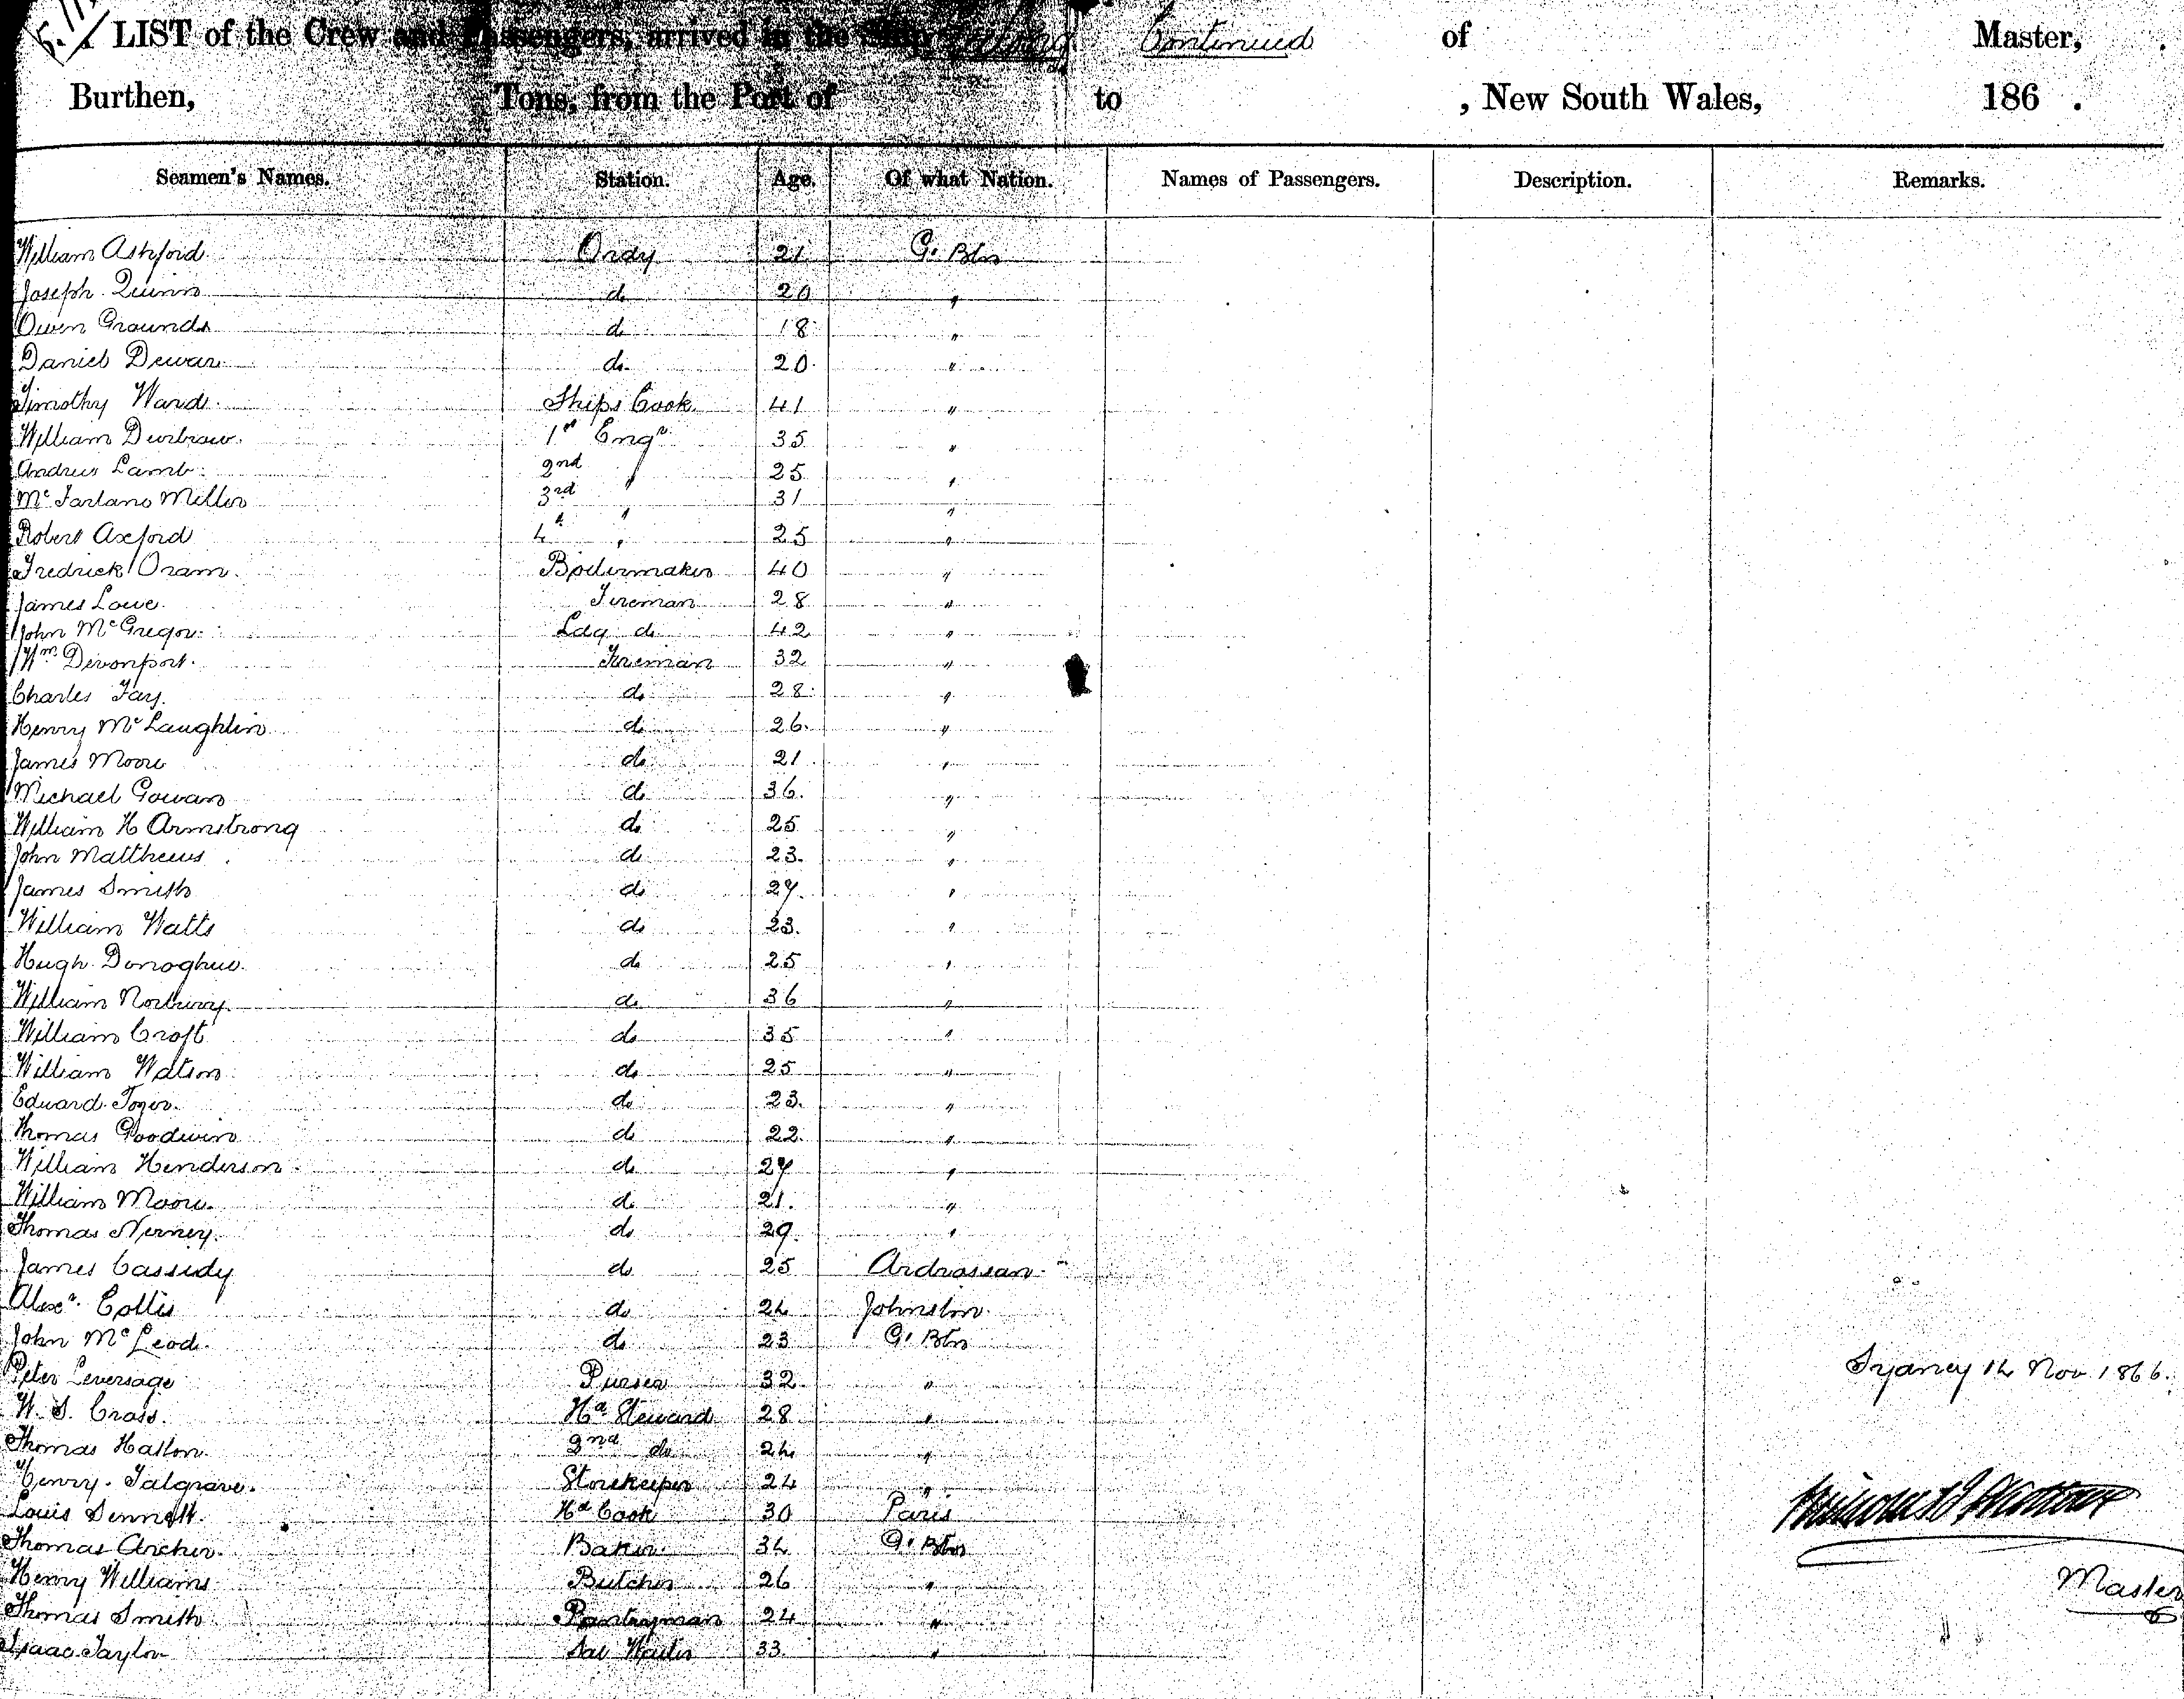 LIST of the Crew and Passengers, arrived in the Ship Continued of Master,
Burthen, Tons, from the Port of to , New South Wales, 186 .
Seamen's Names. Station. Age. Of what Nation. Names of Passengers. Description. Remarks.
William Ashford Ordy 21 G. Btn
Joseph Quinn do 20 "
Owen Grounds do 18 "
Daniel Dewar do 20 "
Timothy Ward Ships Cook 41 "
William Durbrow 1st Engr 35 "
Andrew Lamb 2nd " 25 "
McFarlane Miller 3rd " 31 "
Robert Axford 4th " 25 "
Fredrick Oram Boilermaker 40 "
James Lowe Fireman 28 "
John McGregor Ldg do 42 "
Wm Devonport Fireman 32 "
Charles Fay do 28 "
Henry McLaughlin do 26 "
James Moore do 21 "
Michael Gowan do 36 "
William H Armstrong do 25 "
John Matthews do 23 "
James Smith do 27 "
William Watts do 23 "
Hugh Donoghue do 25 "
William do 36 "
William Croft do 35 "
William Watson do 25 "
Edward Tozer do 23 "
Thomas Goodwin do 22 "
William Henderson do 27 "
William Moore do 21 "
Thomas Nerney do 29 "
James Cassidy do 25 Ardrossan
Alexr. Collis do 24 Johnston
John McLeod do 23 G. Btn
Peter Leversage Purser 32 "
Sydney 14 Nov 1866.
W. S. Cross Hd Steward 28 "
Thomas Hatton 2nd do 24 "
Henry Falgrave Storekeeper 24 "
Louis Hd Cook 30 Paris
Thomas Archer Baker 34 G. Btn
Henry Williams Butcher 26 "
Master
Thomas Smith Pantryman 24 "
Isaac Taylor Sal Waiter 33 "